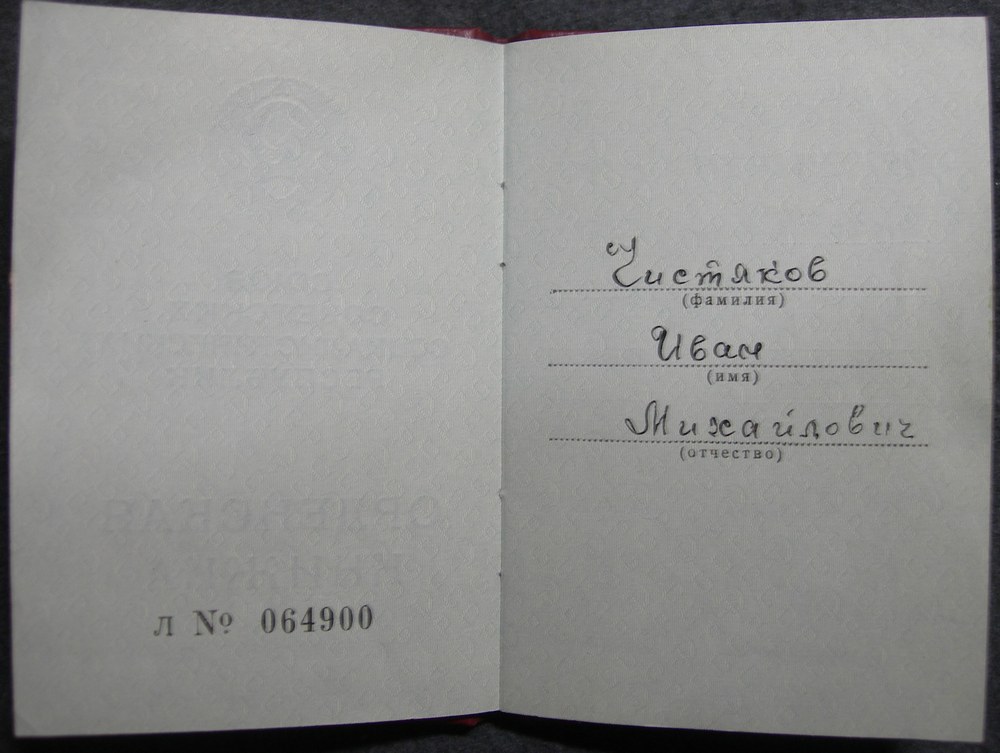 л № 064900
Чистяков
(фамилия)
Иван
(имя)
Михайлович
(отчество)